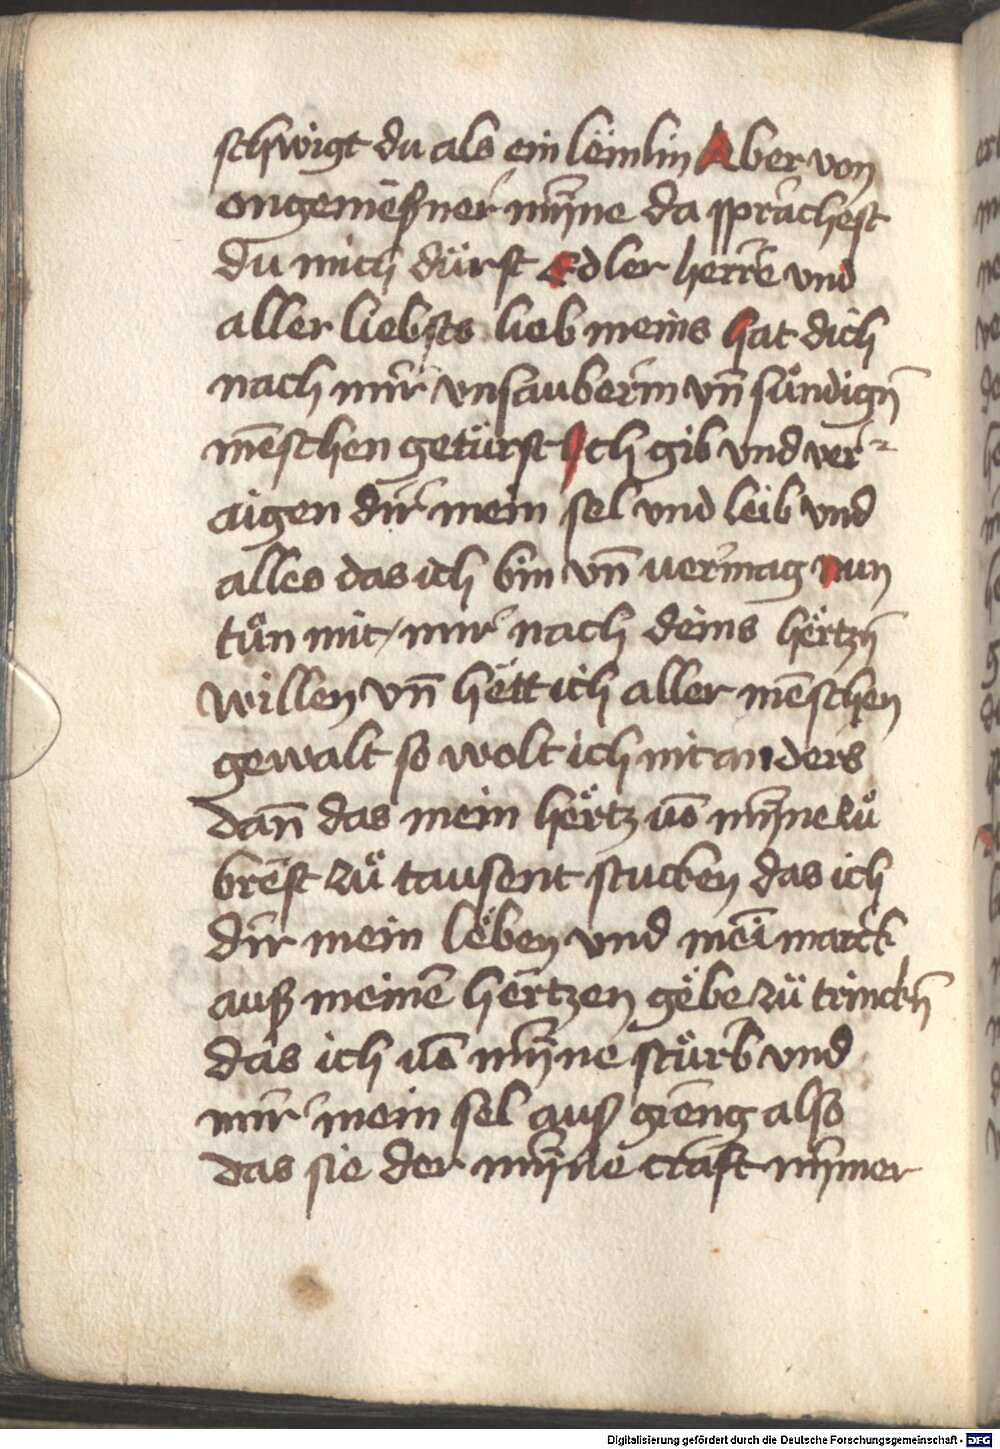 schwigt du als ein lëmlin Aber von
ongemeßner mÿne da sprächest
du mich dürst Edler herre vnd
aller liebsts lieb meins hat dich
nach mir vnsauberm vn̄ sündign̄
mēschen getürst Ich gib vnd ver⸗
aigen dir mein sel vnd leib vnd
alles das ich bin vn̄ vermag nun
tün mit mir nach deins hërtzn̄
willen vn̄ hëtt ich aller mēschen
gewalt so wolt ich nit anders
dan̄ das mein hërtz vō mÿne zů
brest zů tausent stucken das ich
dir mein lëben vnd mein marck
auß meinē hertzen gëbe zü trinckn̄
das ich vō mÿne stürb vnd
mir mein sel auß gieng also
das sie der mÿne craft nÿmer
Digitalisierung gefördert durch die Deutsche Forschungsgemeinschaft - DFG